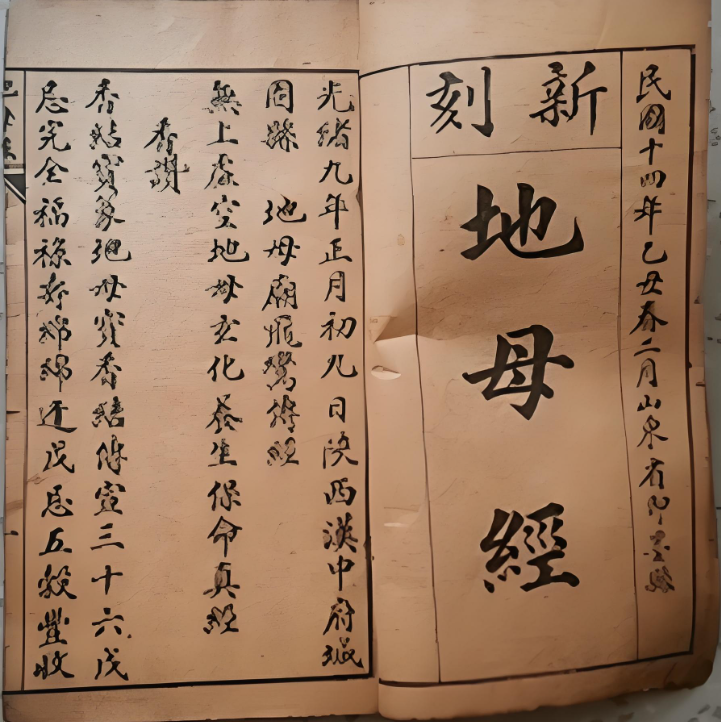 民國十四年乙丑春二月山東省即墨縣
新刻
地母經
光緒九年正月初九日陝西漢中府城
固縣 地母廟飛鸞傳經
無上虛空地母玄化養生保命真經
香讚
香結寶篆地母寶香結傳宣三十六戊
忌完全福祿壽綿綿戊忌五穀豐收